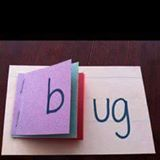 b ug